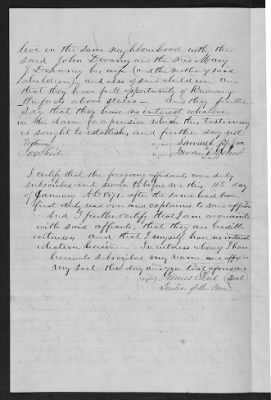 live in the same neighbourhood with the
said John Devany and the said Mary
J Devany his wife (and the mother of said
children) and also of said children and
that they have full opportunity of knowing
the facts above stated — And they further
say that they have no interest whatever
in the claim for a pension which this testimony
is sought to establish, and further say not
Samuel
I certify that the foregoing affidavit was duly
subscribed and sworn to before me this day
of January A.D. 1871, after the same had been
first duly read over and explained to said affiants
And I further certify that I am acquainted
with said affiants, that they are credible
witnesses and that I myself have no interest
whatever herein — In witness whereof I have
hereunto subscribed my name and affix
my seal this day and year last aforesaid
James Seal
Justice of the Peace